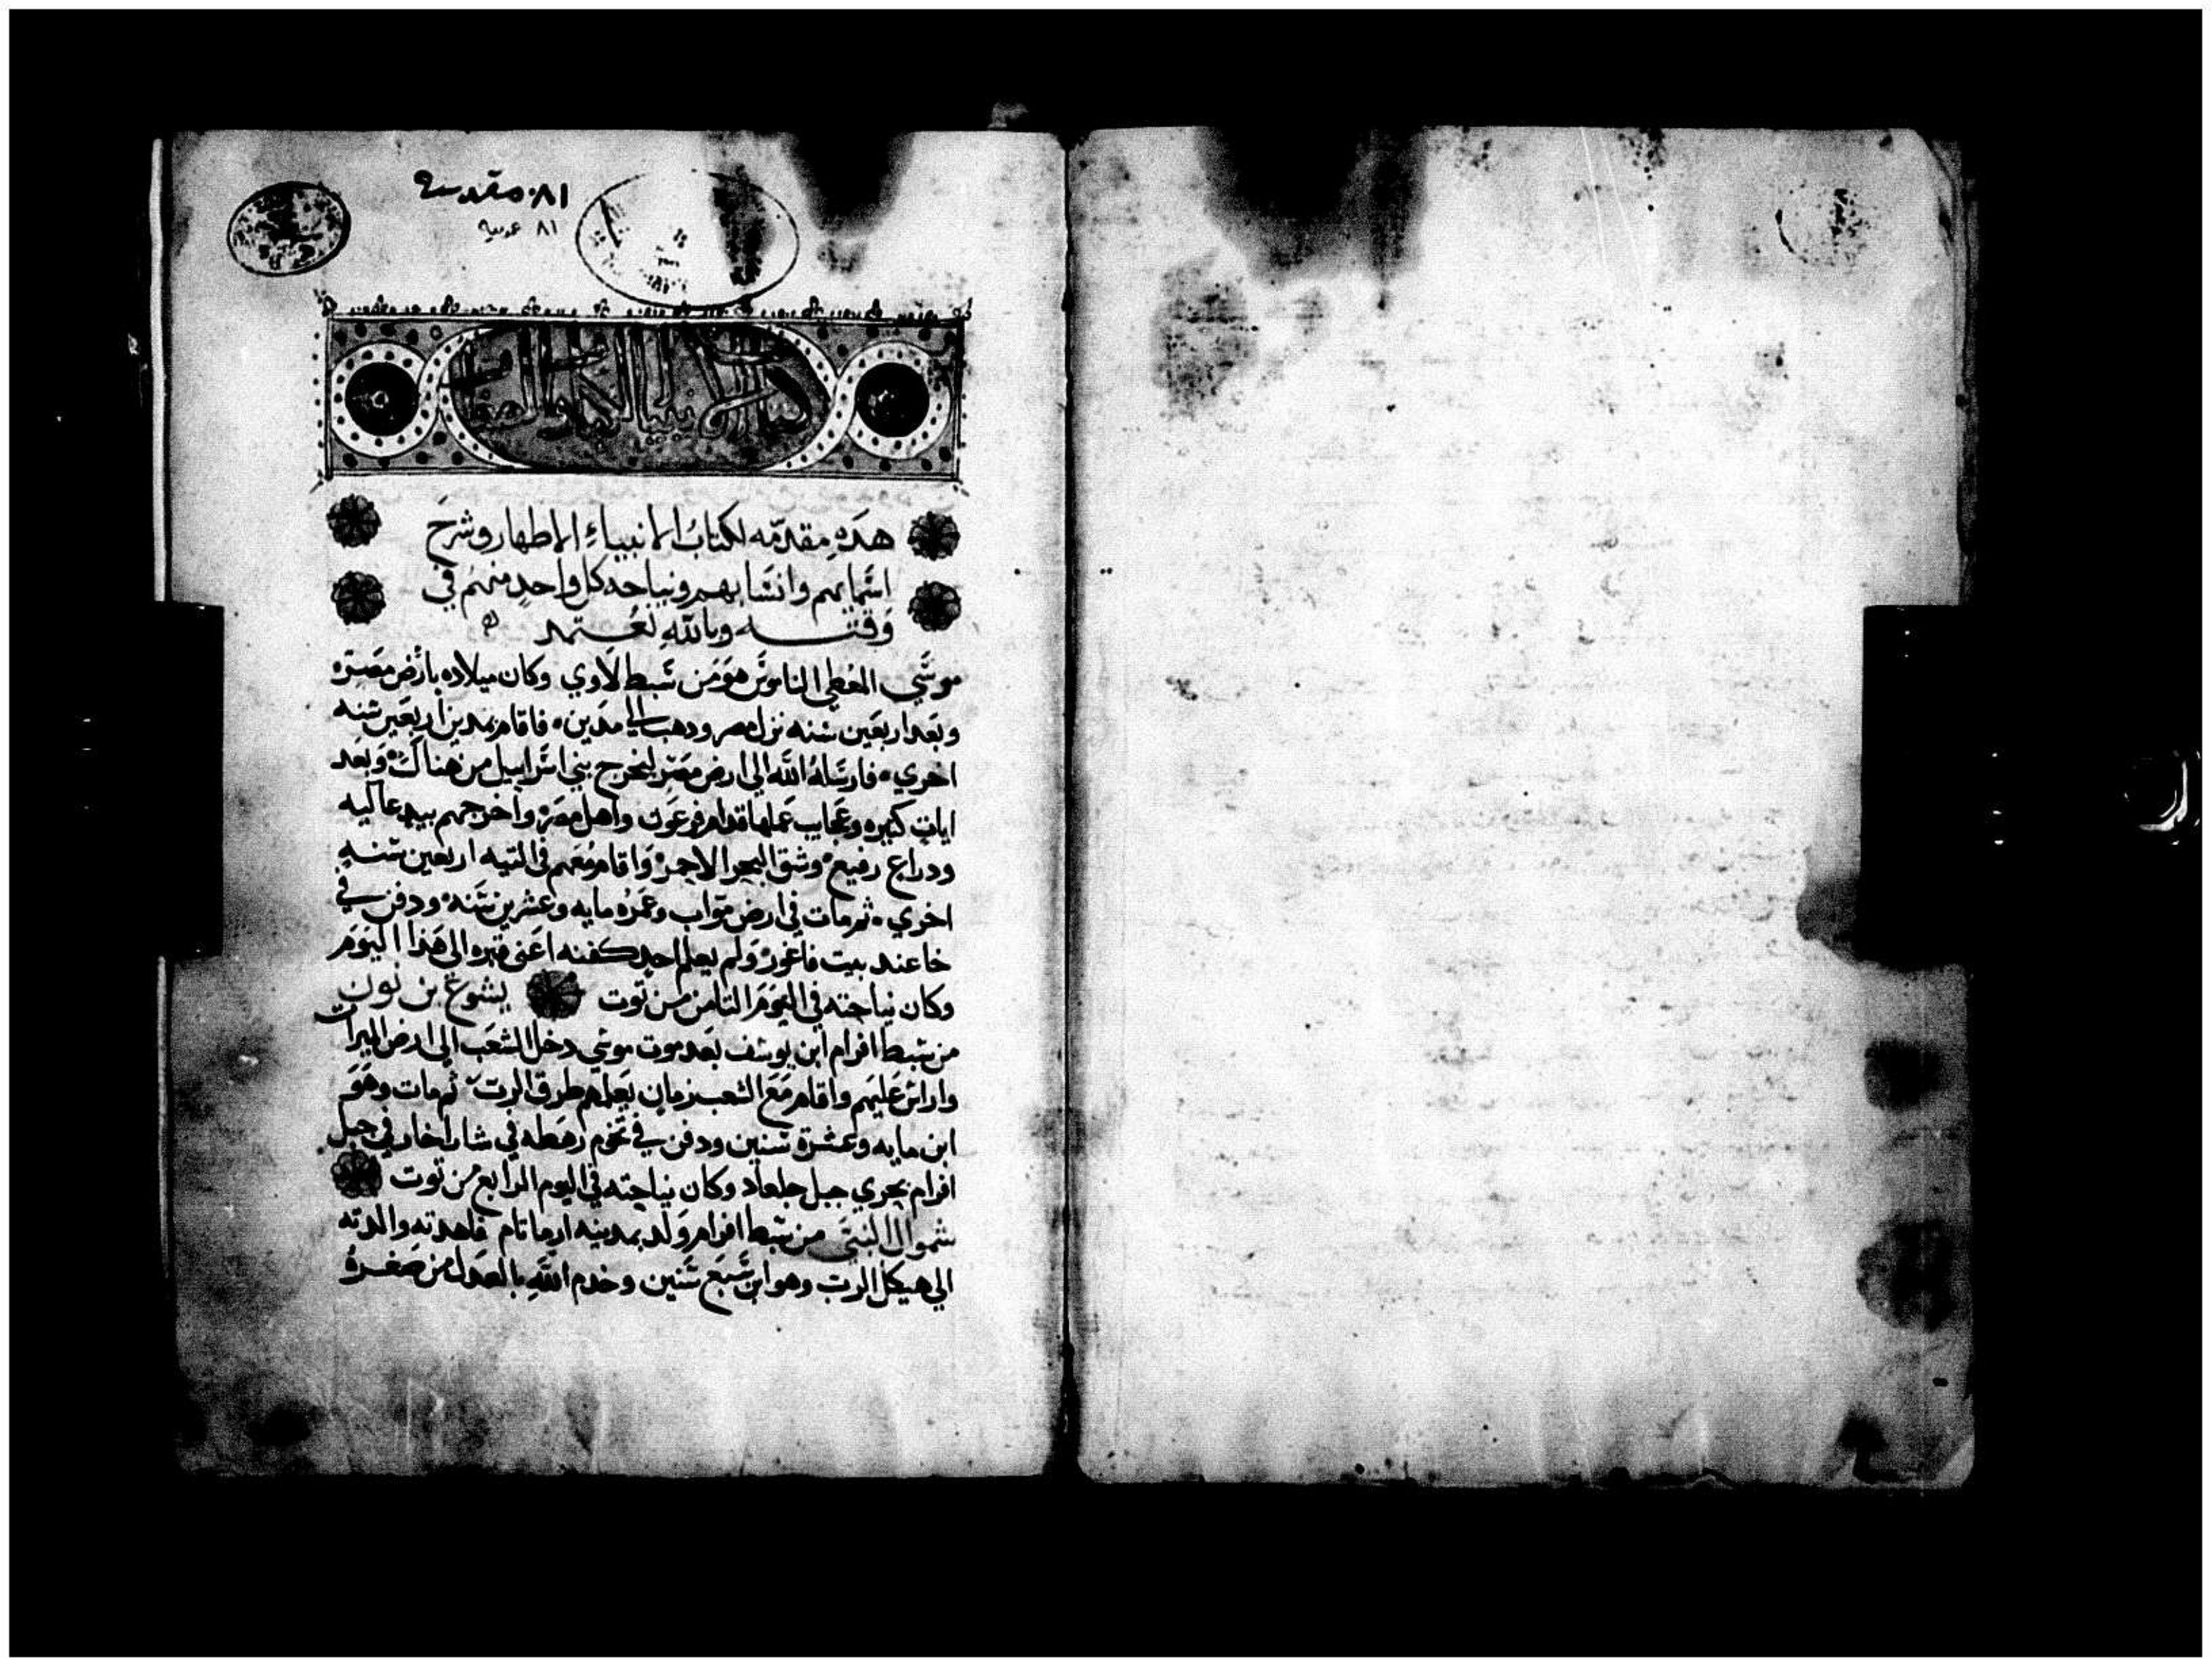 ٨١ مقدسه
٨١ عربيه
كتاب الانبيا الكبار والصغار
هده مقدمه لكتاب الانبياء الاطهار وشرح
اسمايهم وانسابهم ونياحه كل واحد منهم في
وقته وبالله نعتمد
موسي المعطي الناموس هو من سبط لاوي وكان ميلاده بارض مصر
وبعد اربعين سنه نزل مصر ودهب الي مدين فاقام بمدين اربعين سنه
اخري فارسله الله الي ارض مصر ليخرج بني اسراييل من هناك وبعد
ايات كثيره وعجايب عملها قدام فرعون واهل مصر واخرجهم بيد عاليه
ودراع رفيع وشق البحر الاحمر واقام معهم في التيه اربعين سنه
اخري ثم مات في ارض مواب وعمره مايه وعشرين سنه ودفن في
خا عند بيت فاغور ولم يعلم احد كفنه اعني قبره الي هذا اليوم
وكان نياحته في اليوم الثامن من توت يشوع بن نون
من سبط افرام ابن يوسف بعد موت موسي دخل الشعب الي ارض الميرات
وارائس عليهم واقام مع الشعب زمان يعلمهم طرق الرب ثم مات وهو
ابن مايه وعشرة سنين ودفن في تخم رهطه في شاراخار في جبل
افرام بحري جبل جلعاد وكان نياحته في اليوم الرابع من توت
شموال النبي من سبط افرام ولد بمدينه ارماتام فاهدته والدته
الي هيكل الرب وهو ابن سبع سنين وخدم الله بالعدل من صغره